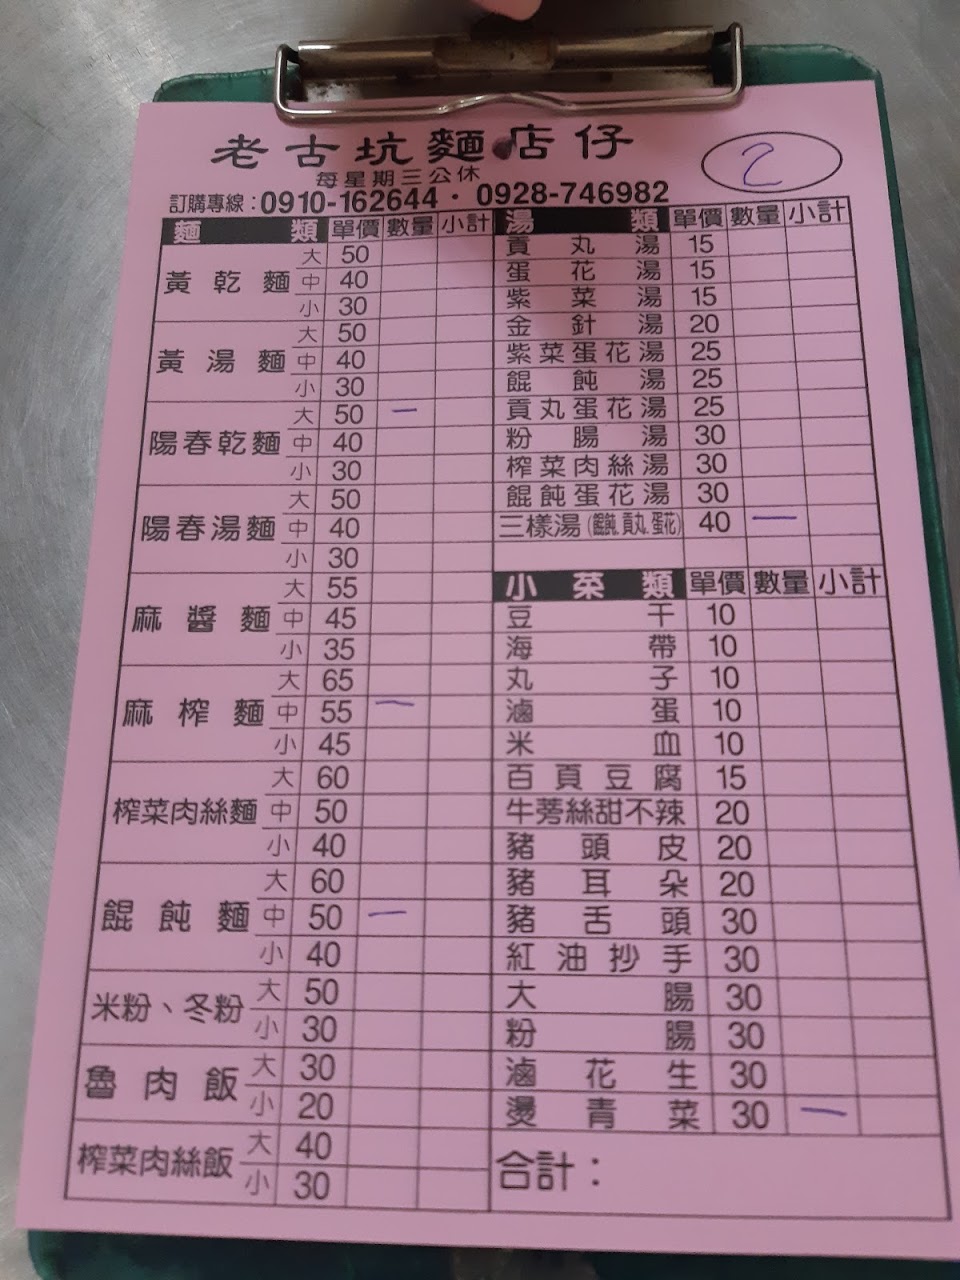 老古坑麵店仔
每星期三公休
訂購專線：0910-162644．0928-746982
2
麵類 單價 數量 小計
黃乾麵 大 50
中 40
小 30
黃湯麵 大 50
中 40
小 30
陽春乾麵 大 50 一
中 40
小 30
陽春湯麵 大 50
中 40
小 30
麻醬麵 大 55
中 45
小 35
麻榨麵 大 65
中 55 一
小 45
榨菜肉絲麵 大 60
中 50
小 40
餛飩麵 大 60
中 50 一
小 40
米粉、冬粉 大 50
小 30
魯肉飯 大 30
小 20
榨菜肉絲飯 大 40
小 30
湯類 單價 數量 小計
貢丸湯 15
蛋花湯 15
紫菜湯 15
金針湯 20
紫菜蛋花湯 25
餛飩湯 25
貢丸蛋花湯 25
粉腸湯 30
榨菜肉絲湯 30
餛飩蛋花湯 30
三樣湯(餛飩.貢丸.蛋花) 40 一
小菜類 單價 數量 小計
豆干 10
海帶 10
丸子 10
滷蛋 10
米血 10
百頁豆腐 15
牛蒡絲甜不辣 20
豬頭皮 20
豬耳朵 20
豬舌頭 30
紅油抄手 30
大腸 30
粉腸 30
滷花生 30
燙青菜 30 一
合計：